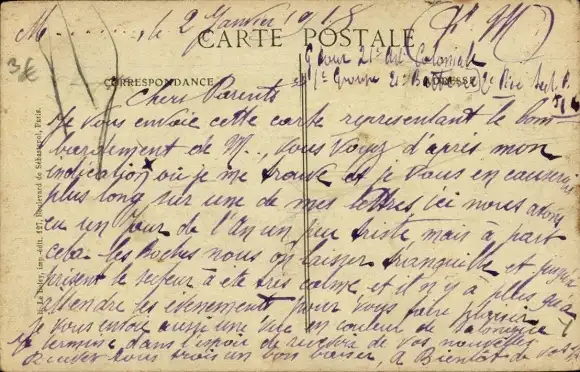 M......., le 2 Janvier 1918
F M
CARTE POSTALE
21e Coloniale
1e Groupe 21e Batterie
CORRESPONDANCE
ADRESSE
3€
Chers Parents
Je vous envoie cette carte representant le bom
bardement de M.., vous voyez d'apres mon
indication x où je me trouve et je vous en causerai
plus long sur une de mes lettres ici nous avons
eu un Jour de l'An un peu triste mais à part
cela les Boches nous ont laisser tranquille et jusqu'à
présent le secteur à été très calme et il n'y a plus qu'a
attendre les evenements pour vous faire plaisir
je vous envoie aussi une vue en couleur de Salonique
Je termine dans l'espoir de recevoir de vos nouvelles
Recevez tous trois un bon baiser, à Bientôt de vos
imp.-édit. 127, Boulevard de Sébastopol, Paris.